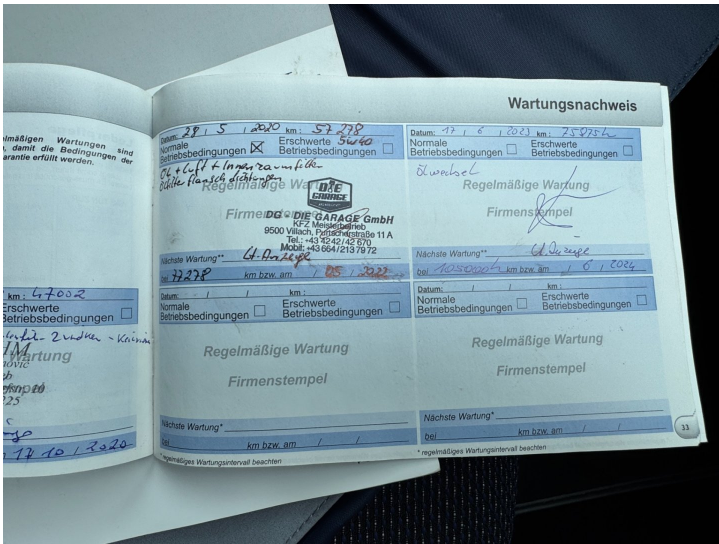 Wartungsnachweis
elmäßigen Wartungen sind
, damit die Bedingungen der
arantie erfüllt werden.
km: 47002
Erschwerte
Betriebsbedingungen
Wartung
225
17 10 / 2020
Datum: 28 / 5 / 2020 km: 57278
Normale
Betriebsbedingungen
Erschwerte 5W40
Betriebsbedingungen
Öl + Luft + Innenraumfilter
Ölfilterflansch dichtungen
Regelmäßige Wartung
Firmenstempel
DIE
GARAGE
DG - DIE GARAGE GmbH
KFZ Meisterbetrieb
9500 Villach, Purtscherstraße 11 A
Tel.: +43 4242 / 42 670
Mobil: +43 664 / 213 79 72
Nächste Wartung** lt. Anzeige
bei 77278 km bzw. am / 05 / 2022
Datum: 17 / 6 / 2023 km:
Normale
Betriebsbedingungen
Erschwerte
Betriebsbedingungen
Ölwechsel
Regelmäßige Wartung
Firmenstempel
Nächste Wartung** lt. Anzeige
bei km bzw. am / 6 / 2024
Datum: / / km:
Normale
Betriebsbedingungen
Erschwerte
Betriebsbedingungen
Regelmäßige Wartung
Firmenstempel
Nächste Wartung*
bei km bzw. am / /
* regelmäßiges Wartungsintervall beachten
Datum: / / km:
Normale
Betriebsbedingungen
Erschwerte
Betriebsbedingungen
Regelmäßige Wartung
Firmenstempel
Nächste Wartung*
bei km bzw. am / /
* regelmäßiges Wartungsintervall beachten
33